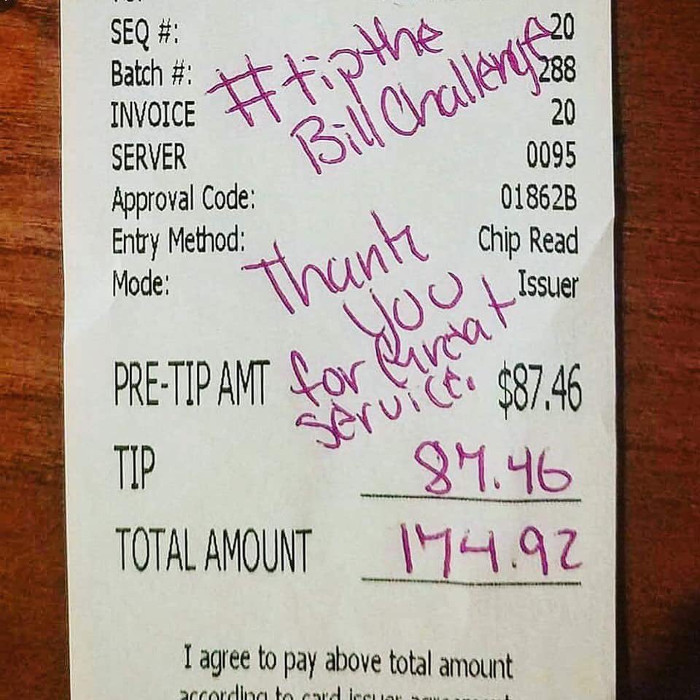 SEQ #: 20
#tipthe
Batch #: 288
Bill Challenge
INVOICE 20
SERVER 0095
Approval Code: 01862B
Entry Method: Chip Read
Thank
Mode: Issuer
you
for Great
PRE-TIP AMT $87.46
service.
TIP 87.46
TOTAL AMOUNT 174.92
I agree to pay above total amount
according to card issuer agreement